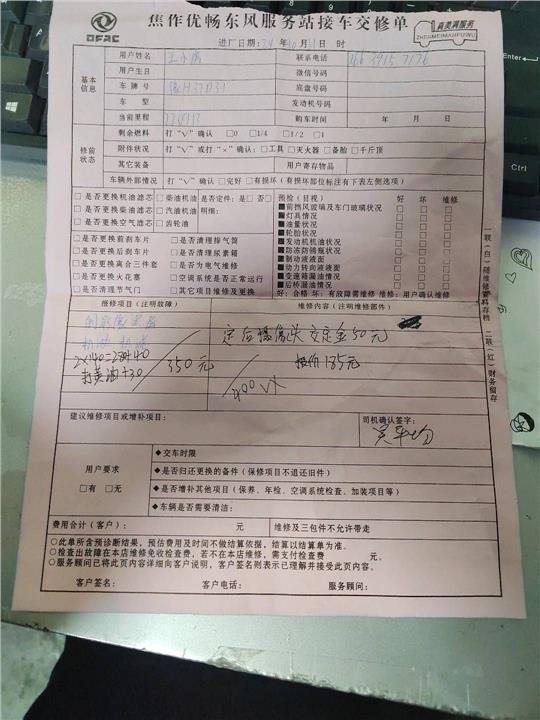 DFAC
焦作优畅东风服务站接车交修单
真美满服务
ZHENMEIMANFUWU
进厂日期: 年 月 31 日 时
基本信息
用户姓名
联系电话
用户生日
微信号码
车牌号
底盘号码
车 型
发动机号码
当前里程
购车时间 年 月 日
修前状态
剩余燃料 打“√”确认 □0 □1/4 □1/2 □1
附件状况 打“√”或打“×”确认:□工具 □灭火器 □备胎 □千斤顶
其它装备
用户寄存物品
车辆外部情况 打“√”确认 □完好 □有损坏(有损坏部位标注有下表左侧选项)
□是否更换机油滤芯 □柴油机油 是否定件:□是 □否
□是否更换柴油滤芯 □汽油机油 明细:
□是否更换空气滤芯 □齿轮油
□是否更换前刹车片 □是否清理排气筒
□是否更换后刹车片 □是否清理尿素箱
□是否更换离合三件套 □是否为电气维修
□是否更换火花塞 □空调系统是否正常运行
□是否清理节气门 □其它项目维修及更换
预检(目视) 好 坏 维修
■前挡风玻璃及车门玻璃状况 □ □ □
■灯具情况 □ □ □
■油量状况 □ □ □
■轮胎状况 □ □ □
■发动机机油状况 □ □ □
■防冻防锈瓶状况 □ □ □
■制动液液面 □ □ □
■动力转向液液面 □ □ □
■变速箱漏油情况 □ □ □
■后桥漏油情况 □ □ □
好:合格 坏:有故障需维修 维修:用户确认维修
报修项目(注明故障)
维修内容(注明维修部件)
机油 机滤
2×140=280+40
打黄油+30
350元
定后摄像头交定金50元
报价185元
400 VX
建议维修项目或增补项目:
司机确认签字:
用户要求
□有 □无
◆交车时限
◆是否归还更换的备件(保修项目不退还旧件)
◆是否增补其他项目(保养、年检、空调系统检查、加装项目等)
◆车辆是否需要清洁:
费用合计(客户): 元
维修及三包件不允许带走
○此单所含预诊断结果,预估费用及时间不做结算依据,结算以结算单为准。
○检查出故障在本店维修免收检查费,若不在本店维修,需支付检查费 元。
○服务顾问已将此页内容详细向客户说明,客户签名则表示已理解并接受此页内容。
客户签名: 客户电话: 服务顾问:
一联(白)随维修资料存档
二联(红)财务留存
Enter
Ctrl